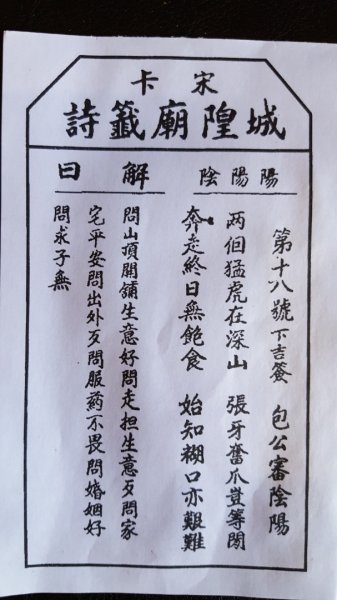 宋卡
城隍廟籤詩
陽陽陰
第十八號下吉簽 包公審陰陽
两佪猛虎在深山 張牙奮爪豈等閑
奔走終日無飽食 始知糊口亦艱難
解曰
問山頂開舖生意好問走担生意歹問家
宅平安問出外歹問服葯不畏問婚姻好
問求子無